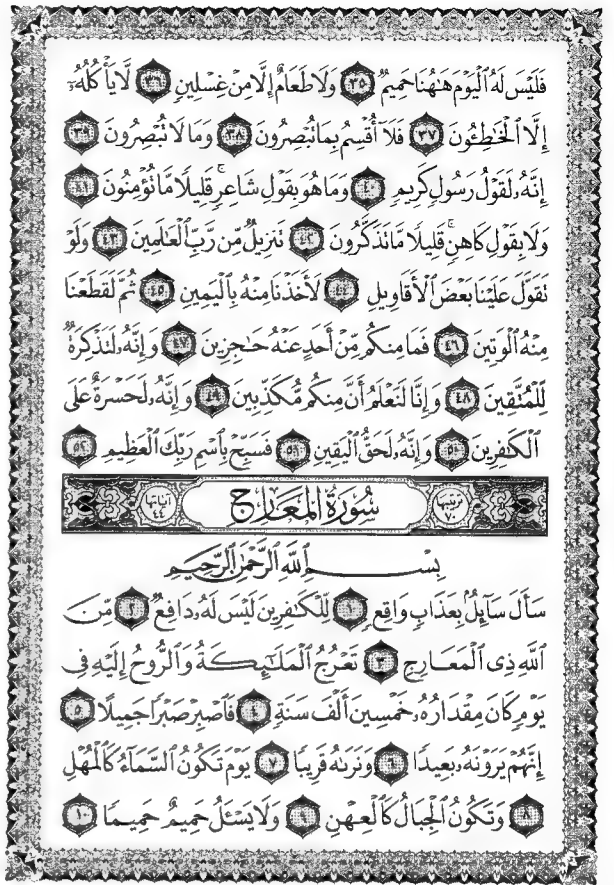 فَلَيْسَ لَهُ ٱلْيَوْمَ هَـٰهُنَا حَمِيمٌ ٣٥ وَلَا طَعَامٌ إِلَّا مِنْ غِسْلِينٍ ٣٦ لَّا يَأْكُلُهُۥٓ
إِلَّا ٱلْخَـٰطِـُٔونَ ٣٧ فَلَآ أُقْسِمُ بِمَا تُبْصِرُونَ ٣٨ وَمَا لَا تُبْصِرُونَ ٣٩
إِنَّهُۥ لَقَوْلُ رَسُولٍ كَرِيمٍ ٤٠ وَمَا هُوَ بِقَوْلِ شَاعِرٍ ۚ قَلِيلًا مَّا تُؤْمِنُونَ ٤١
وَلَا بِقَوْلِ كَاهِنٍ ۚ قَلِيلًا مَّا تَذَكَّرُونَ ٤٢ تَنزِيلٌ مِّن رَّبِّ ٱلْعَـٰلَمِينَ ٤٣ وَلَوْ
تَقَوَّلَ عَلَيْنَا بَعْضَ ٱلْأَقَاوِيلِ ٤٤ لَأَخَذْنَا مِنْهُ بِٱلْيَمِينِ ٤٥ ثُمَّ لَقَطَعْنَا
مِنْهُ ٱلْوَتِينَ ٤٦ فَمَا مِنكُم مِّنْ أَحَدٍ عَنْهُ حَـٰجِزِينَ ٤٧ وَإِنَّهُۥ لَتَذْكِرَةٌ
لِّلْمُتَّقِينَ ٤٨ وَإِنَّا لَنَعْلَمُ أَنَّ مِنكُم مُّكَذِّبِينَ ٤٩ وَإِنَّهُۥ لَحَسْرَةٌ عَلَى
ٱلْكَـٰفِرِينَ ٥٠ وَإِنَّهُۥ لَحَقُّ ٱلْيَقِينِ ٥١ فَسَبِّحْ بِٱسْمِ رَبِّكَ ٱلْعَظِيمِ ٥٢
ترتيبها ٧٠ سُورَةُ المَعَارِجِ آياتها ٤٤
بِسْمِ ٱللَّهِ ٱلرَّحْمَـٰنِ ٱلرَّحِيمِ
سَأَلَ سَآئِلٌۢ بِعَذَابٍ وَاقِعٍ ١ لِّلْكَـٰفِرِينَ لَيْسَ لَهُۥ دَافِعٌ ٢ مِّنَ
ٱللَّهِ ذِى ٱلْمَعَارِجِ ٣ تَعْرُجُ ٱلْمَلَـٰٓئِكَةُ وَٱلرُّوحُ إِلَيْهِ فِى
يَوْمٍ كَانَ مِقْدَارُهُۥ خَمْسِينَ أَلْفَ سَنَةٍ ٤ فَٱصْبِرْ صَبْرًا جَمِيلًا ٥
إِنَّهُمْ يَرَوْنَهُۥ بَعِيدًا ٦ وَنَرَىٰهُ قَرِيبًا ٧ يَوْمَ تَكُونُ ٱلسَّمَآءُ كَٱلْمُهْلِ
٨ وَتَكُونُ ٱلْجِبَالُ كَٱلْعِهْنِ ٩ وَلَا يَسْـَٔلُ حَمِيمٌ حَمِيمًا ١٠